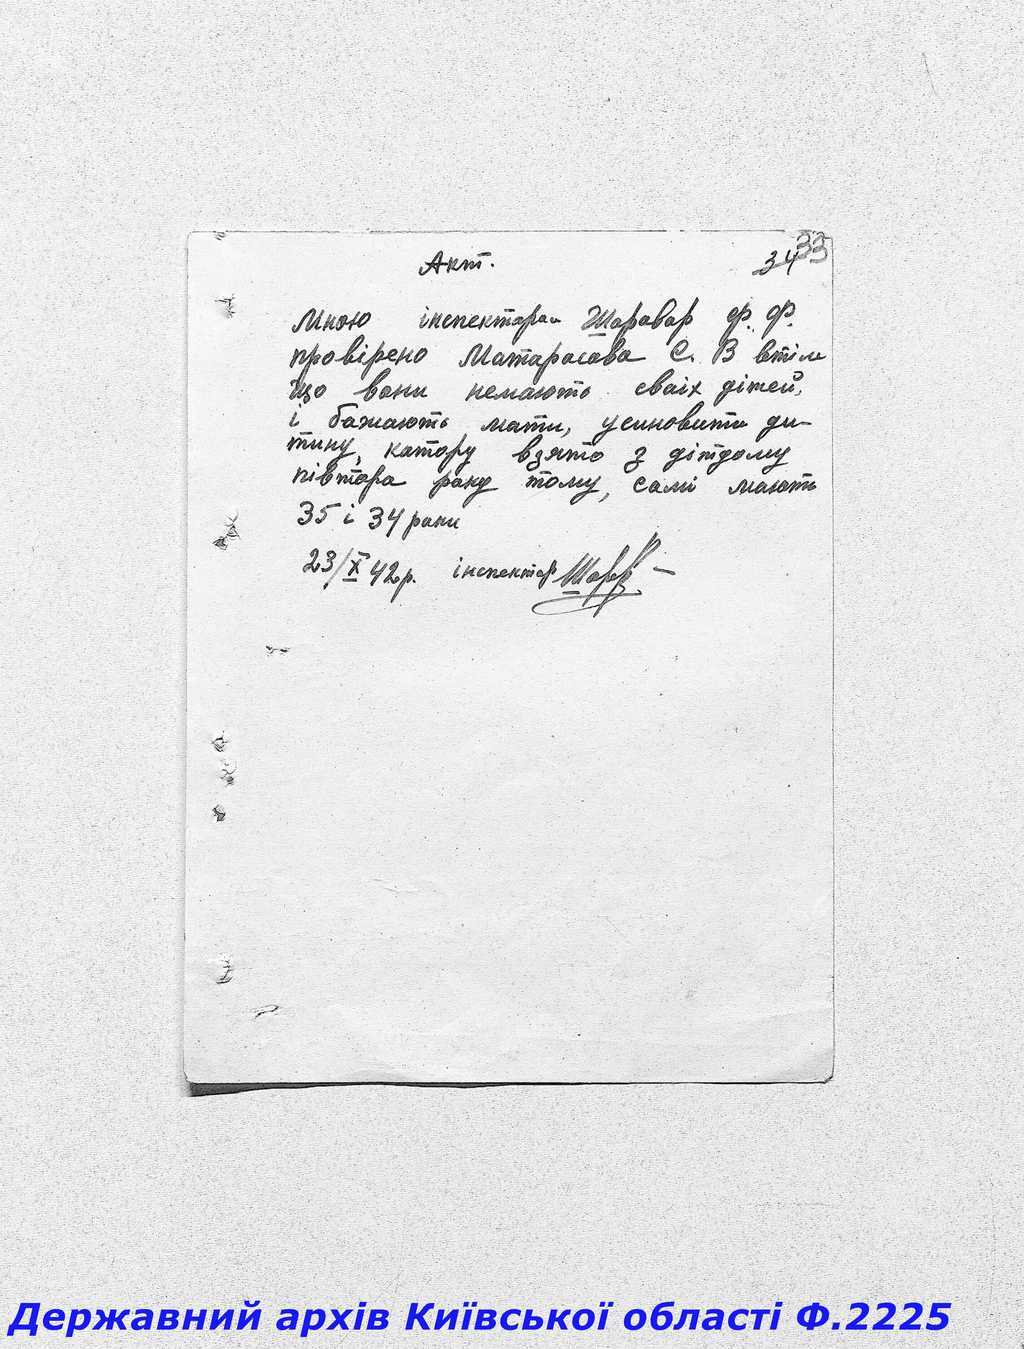 Акт.
34 33
Мною інспектором Шаровар Ф. Ф.
провірено Матарасова С. В
що вони немають своіх дітей,
і бажають мати, усиновити ди-
тину, котору взято з дітдому
півтора року тому, самі мають
35 і 34 роки
23/X 42 р. інспектор
Державний архів Київської області Ф.2225